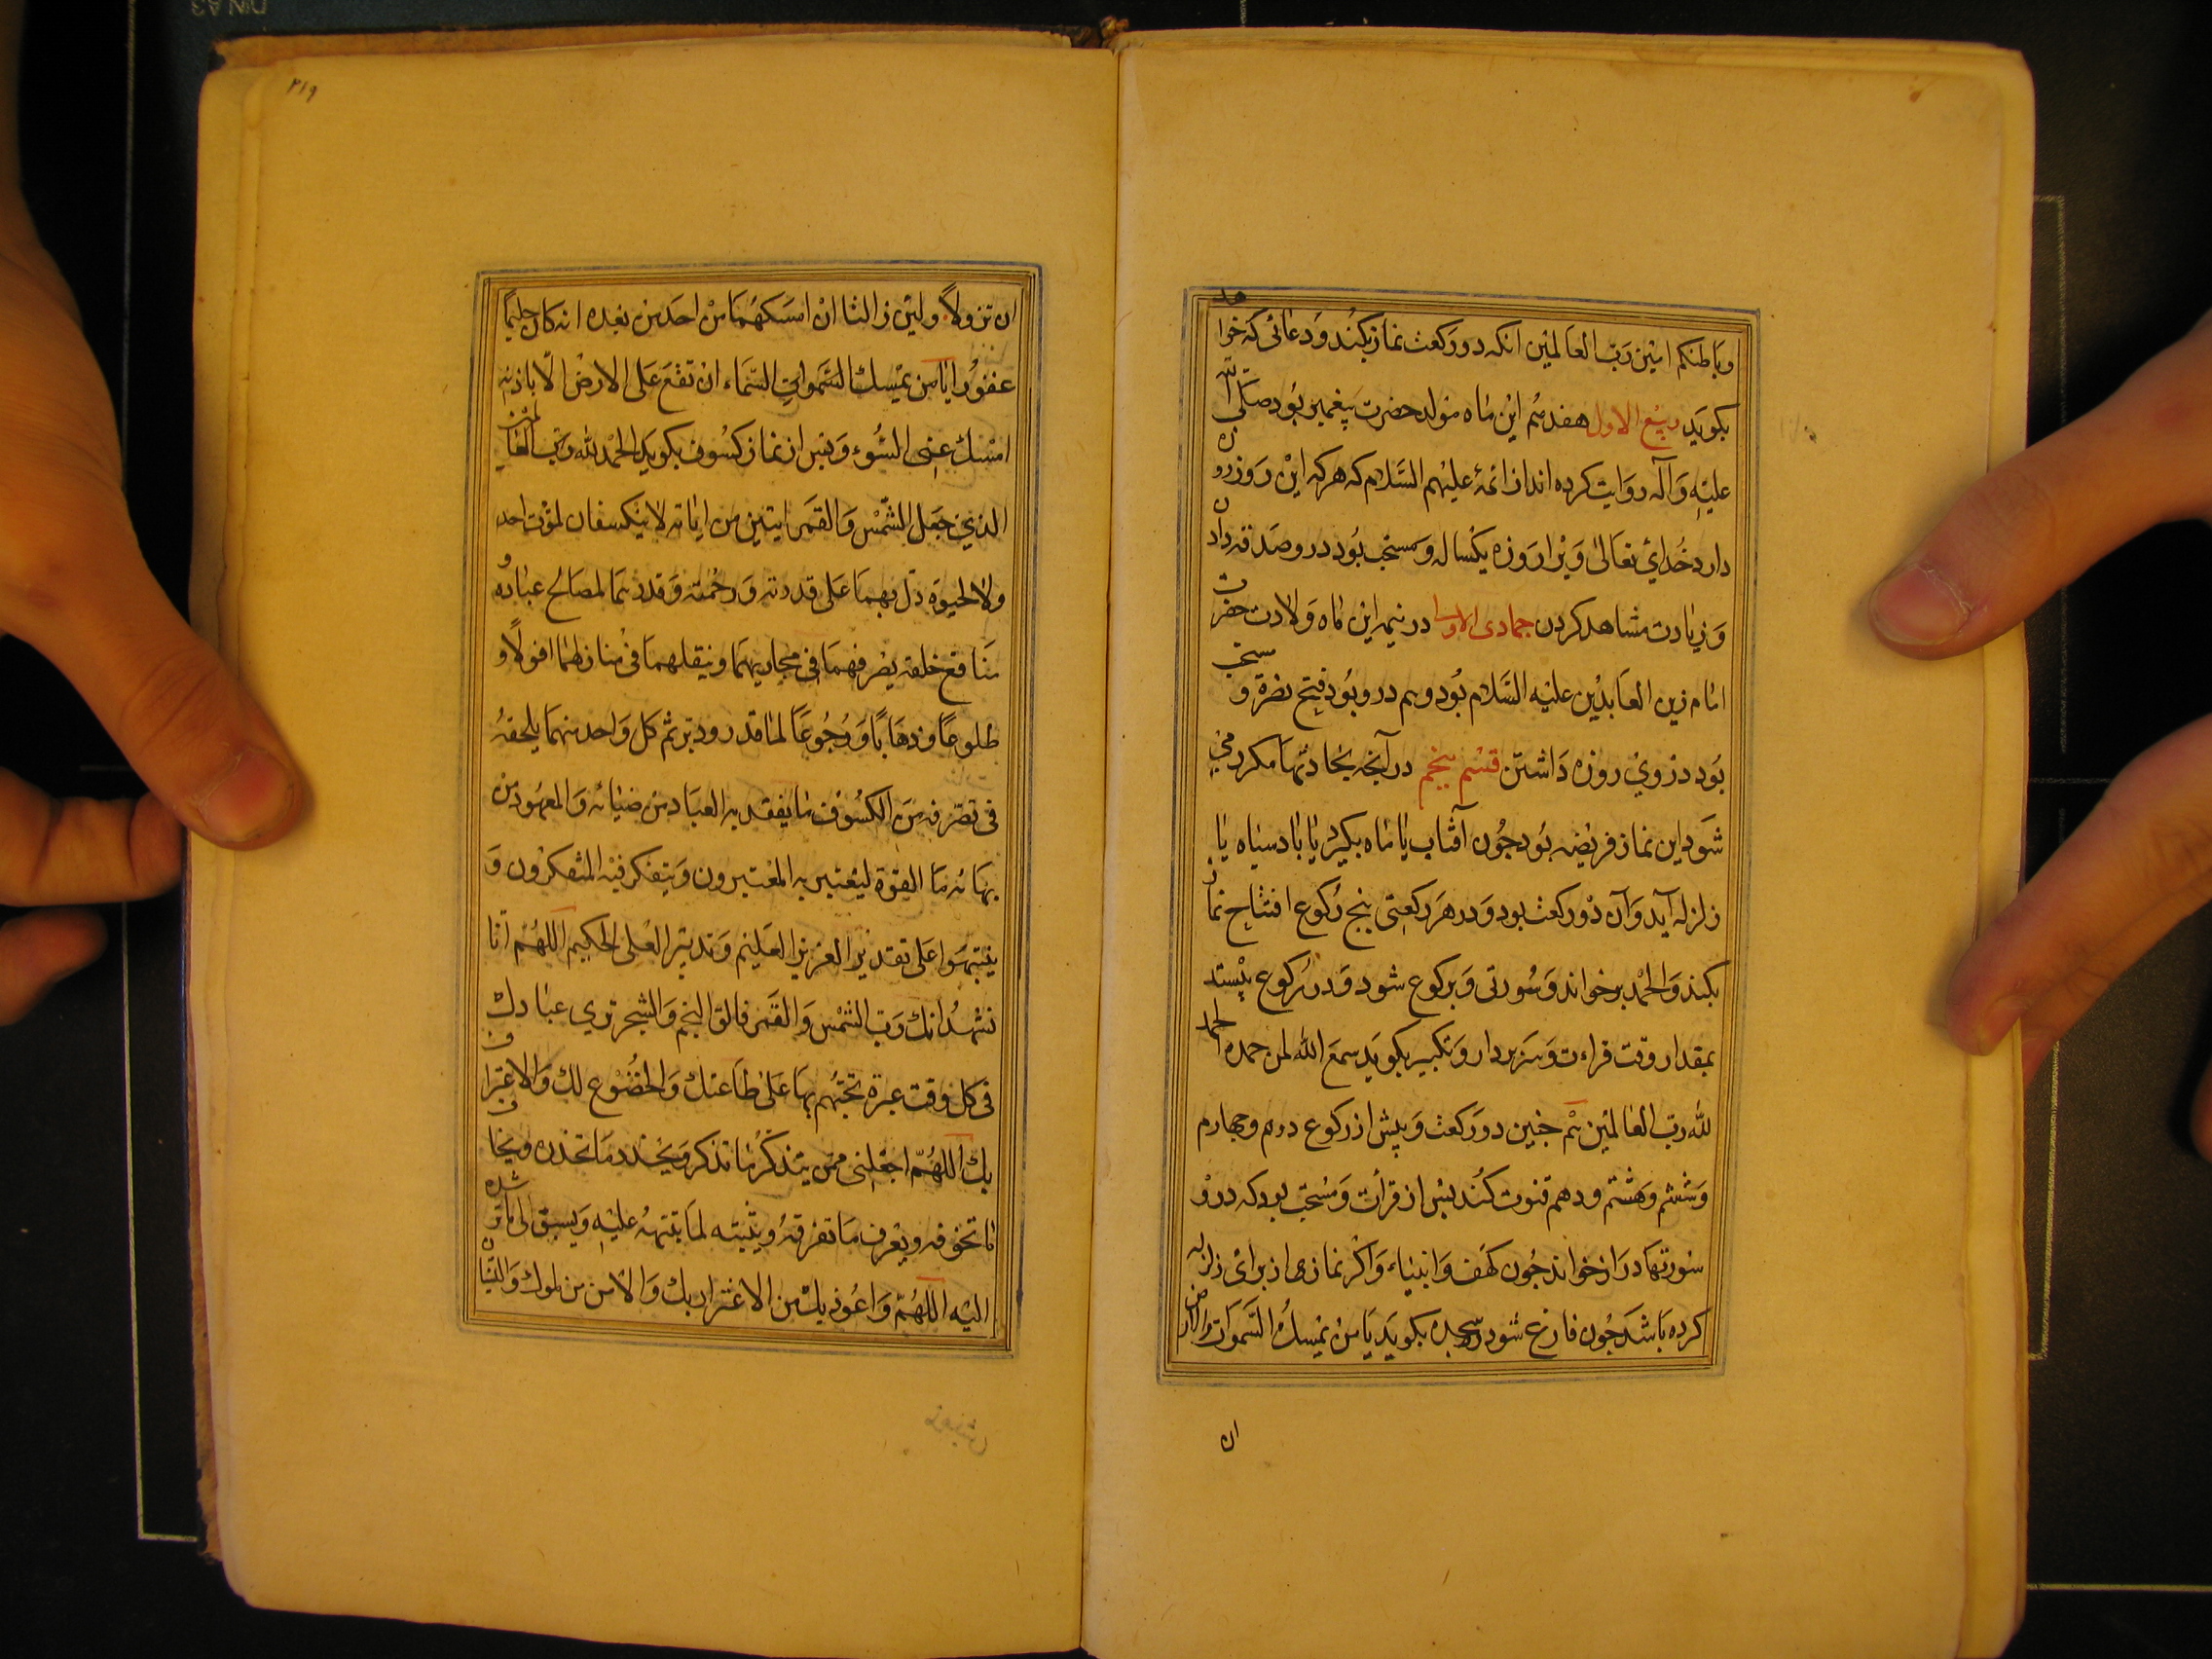 وباطنكم امين رب العالمين انكه دو ركعت نماز بكند و دعائى كه خواهد
بكويد ربيع الاول هفدهم اين ماه مولد حضرت پيغمبر بود صلى الله
عليه وآله روايت كرده اند از ائمة عليهم السلام كه هركه اين روز روزه
دارد خداي تعالى ويرا روزه يكسال و مستحب بود درو صدقه دادن
و زيادت مشاهد كردن جمادى الاولى در نيمه اين ماه ولادت حضرت
امام زين العابدين عليه السلام بود وهم درو بود فتح بصرة و مستحب
بود دروي روزه داشتن قسم پنجم در آنچه بحادثها مكرر مى
شود اين نماز فريضه بود چون آفتاب يا ماه بكيرد يا باد سياه يا
زلزله آيد وآن دو ركعت بود و در هر ركعتى پنج ركوع افتتاح نماز
بكند و الحمد برخواند و سورتى و بركوع شود و در ركوع بيستد
بمقدار وقت قراءت و سر بردارد و تكبير بكويد سمع الله لمن حمده الحمد
لله رب العالمين هم چنين دو ركعت و پيش از ركوع دوم و چهارم
و ششم و هشتم و دهم قنوت كند پس از قرائت و مستحب بود كه درو
سورتها دراز خواند چون كهف و انبياء و اكر نماز از براى زلزله
كرده باشد چون فارغ شود در سجده بكويد يا من يمسك السموات والارض
ان
٢١٩
ان تزولا ولئن زالتا ان امسكهما من احد من بعده انه كان حليما
غفورا يا من يمسك السموات السماء ان تقع على الارض الا باذنه
امسك عنى السوء و پس از نماز كسوف بكويد الحمد لله رب العالمين
الذي جعل الشمس والقمر ايتين من اياته لا ينكسفان لموت احد
ولا لحيوة دل بهما على قدرته ورحمته وقدرهما لمصالح عباده و
منافع خلقه يصرفهما في مجاريهما وينقلهما في منازلهما افولا و
طلوعا وذهابا ورجوعا لما قدر ودبر ثم كل واحد منهما يلحقه
فى تصرفه من الكسوف ما يفقد به العباد من ضيائه والمعهود من
بهائه ما القوة ليعتبر به المعتبرون ويتفكر فيه المتفكرون و
ينتبهوا على تقدير العزيز العليم وتدبير العلى الحكيم اللهم انا
نشهد انك رب الشمس والقمر فالق النجم والشجر تري عبادك
فى كل وقت عبرة تحتهم بها على طاعتك والخضوع لك والاعتراف
بك اللهم اجعلنى ممن يتذكر ما تذكر ويحذر ما تحذره ويخاف
ما تخوفه ويعرف ما تعرفه ويثبته لما تنبه عليه ويسبق الى ما ترشده
اليه اللهم واعوذ بك من الاغترار بك والامن من